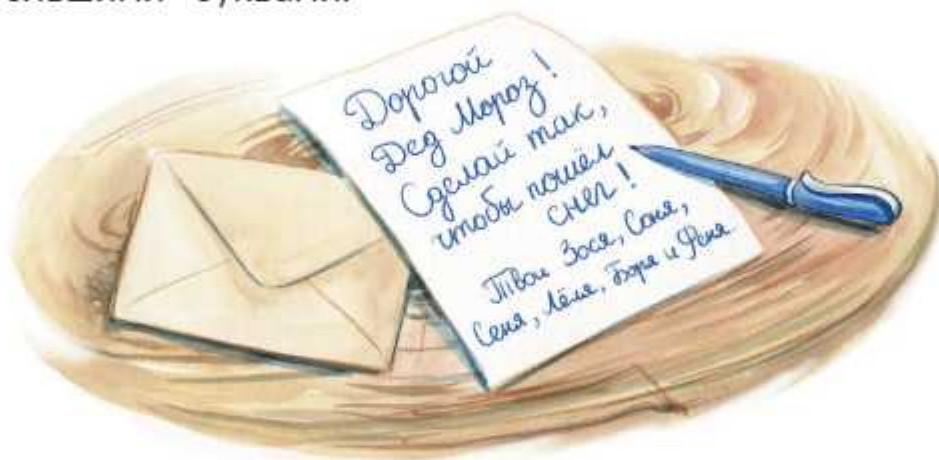 буквами.
Дорогой
Дед Мороз!
Сделай так,
чтобы пошёл
снег!
Твои Зося, Соня,
Сеня, Лёля, Боря и Феня